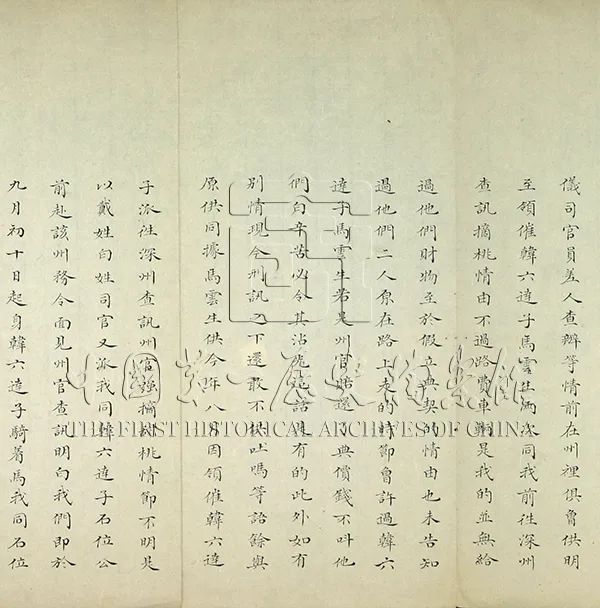 儀司官員差人查辦等情前在州裡俱曾供明
至領催韓六達子馬雲生兩次同我前徃深州
查訊摘桃情由不過路費車腳是我的並無給
過他們財物至於假立典契的情由也未告知
過他們二人原在路上走的時節曾許過韓六
達子馬雲生若是州官姑還了典價錢不呌他
們白辛苦必令其沾光這話是有的此外如有
別情現今刑訊之下還敢不供吐嗎等語餘與
原供同據馬雲生供今年八月因領催韓六達
子派徃深州查訊州官強摘樹桃情節不明是
以戴姓白姓司官又派我同韓六達子石位公
前赴該州務令面見州官查訊明白我們即於
九月初十日起身韓六達子騎着馬我同石位
中國第一歷史檔案館
THE FIRST HISTORICAL ARCHIVES OF CHINA